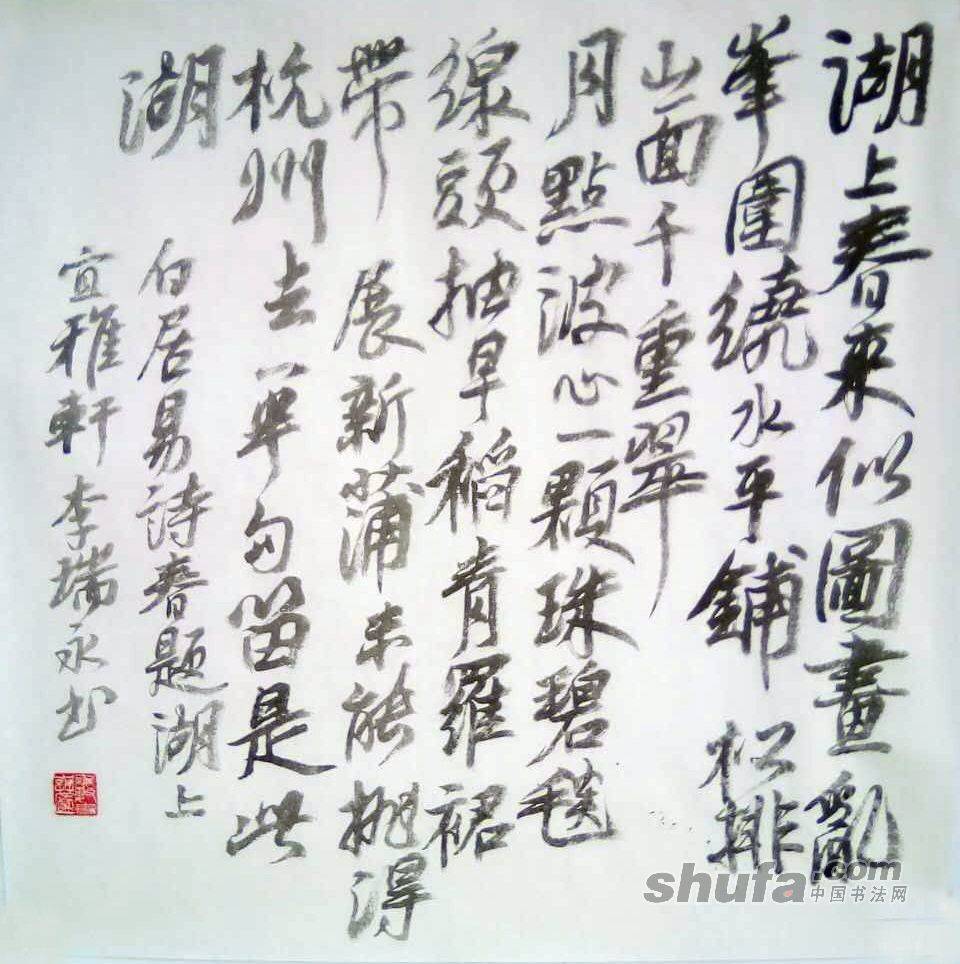 湖上春来似圖畫亂
峯圍繞水平鋪松排
山面千重翠
月點波心一顆珠碧毯
線頭抽早稻青羅裙
帶展新蒲未能抛得
杭州去一半勾留是此
湖
白居易詩春題湖上
宜雅軒李瑞永书
shufa.com
中国书法网